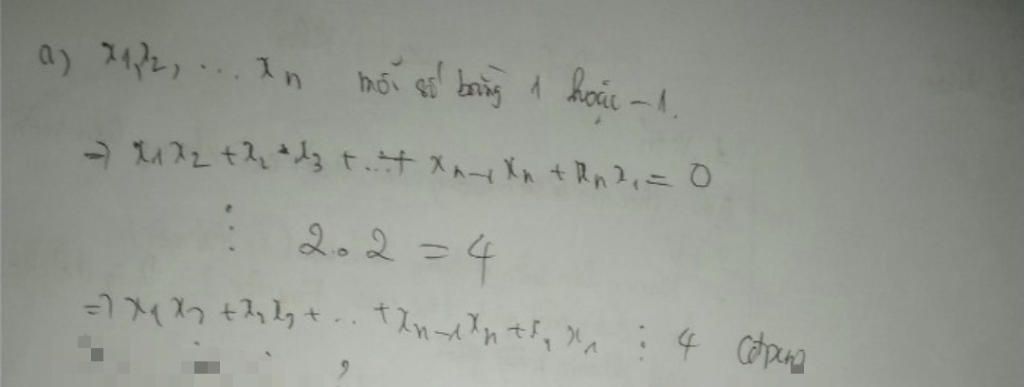 a) x₁, x₂, ... xₙ mỗi số bằng 1 hoặc -1.
=> x₁x₂ + x₂·x₃ + ... + xₙ₋₁xₙ + xₙx₁ = 0
⋮ 2.2 = 4
=> x₁x₂ + x₂x₃ + .. + xₙ₋₁xₙ + xₙx₁ ⋮ 4